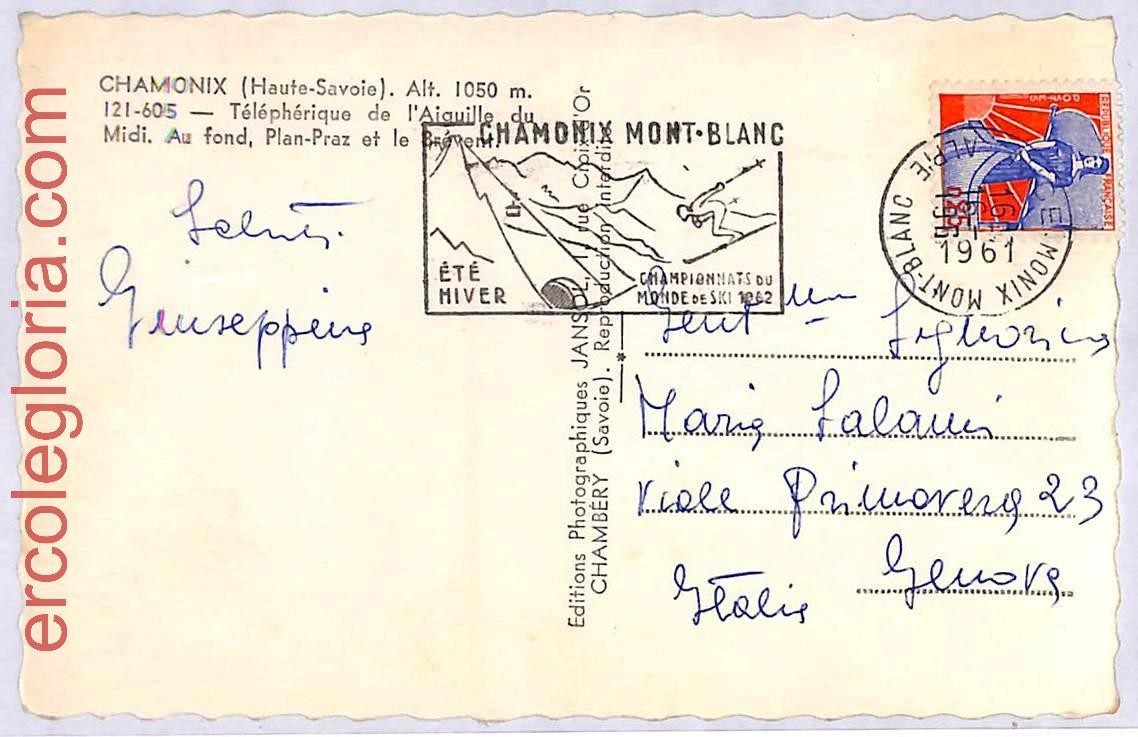 ercolegloria.com
CHAMONIX (Haute-Savoie). Alt. 1050 m.
121-605 — Téléphérique de l'Aiguille du
Midi. Au fond, Plan-Praz et le Brévent.
CHAMONIX MONT-BLANC
ÉTÉ
HIVER
CHAMPIONNATS DU
MONDE DE SKI 1962
REPUBLIQUE FRANÇAISE
0,25
CHAMONIX MONT-BLANC
16
1961
Giuseppina
Editions Photographiques JANSOL, rue Croix d'Or
CHAMBÉRY (Savoie). Reproduction interdite
Signorina
Maria
Viale Primavera 23
Genova
Italia